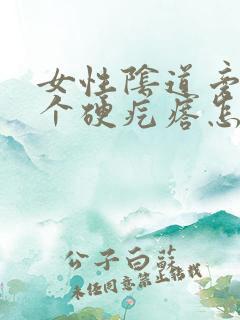 女性陰道旁
个硬疙瘩怎
公子白蘇
未经同意禁止转载